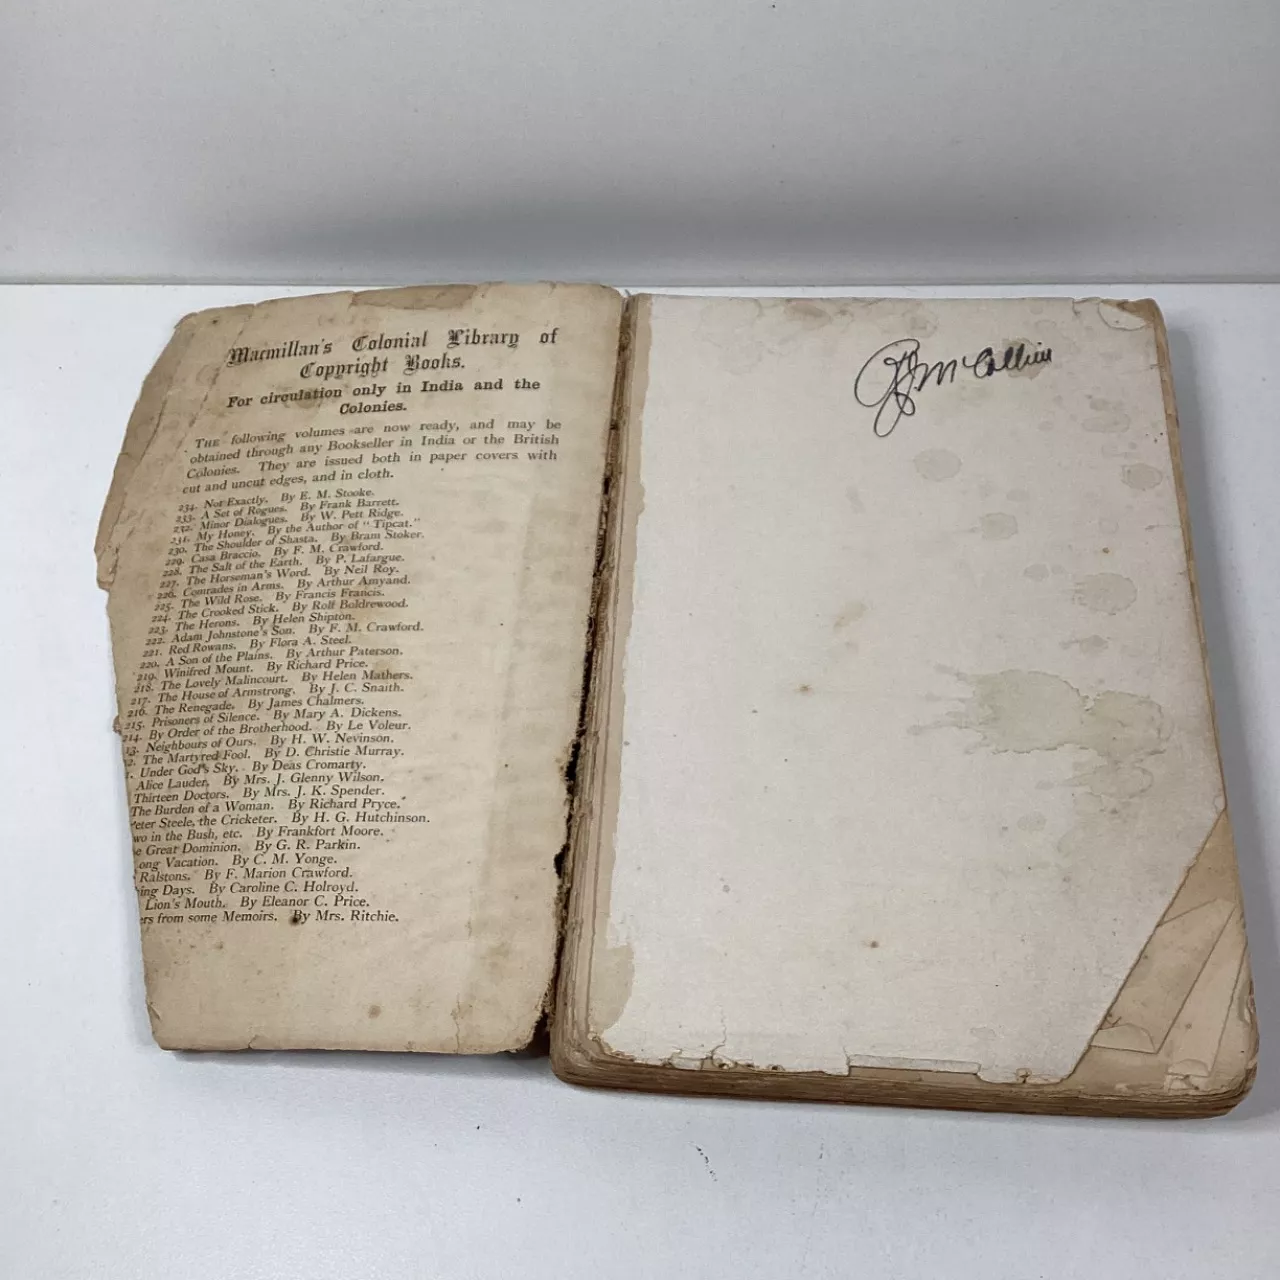 Macmillan's Colonial Library of
Copyright Books.
For circulation only in India and the
Colonies.
THE following volumes are now ready, and may be
obtained through any Bookseller in India or the British
Colonies. They are issued both in paper covers with
cut and uncut edges, and in cloth.
234. Not Exactly. By E. M. Stooke.
233. A Set of Rogues. By Frank Barrett.
232. Minor Dialogues. By W. Pett Ridge.
231. My Honey. By the Author of "Tipcat."
230. The Shoulder of Shasta. By Bram Stoker.
229. Casa Braccio. By F. M. Crawford.
228. The Salt of the Earth. By P. Lafargue.
227. The Horseman's Word. By Neil Roy.
226. Comrades in Arms. By Arthur Amyand.
225. The Wild Rose. By Francis Francis.
224. The Crooked Stick. By Rolf Boldrewood.
223. The Herons. By Helen Shipton.
222. Adam Johnstone's Son. By F. M. Crawford.
221. Red Rowans. By Flora A. Steel.
220. A Son of the Plains. By Arthur Paterson.
219. Winifred Mount. By Richard Price.
218. The Lovely Malincourt. By Helen Mathers.
217. The House of Armstrong. By J. C. Snaith.
216. The Renegade. By James Chalmers.
215. Prisoners of Silence. By Mary A. Dickens.
214. By Order of the Brotherhood. By Le Voleur.
13. Neighbours of Ours. By H. W. Nevinson.
2. The Martyred Fool. By D. Christie Murray.
1. Under God's Sky. By Deas Cromarty.
Alice Lauder. By Mrs. J. Glenny Wilson.
Thirteen Doctors. By Mrs. J. K. Spender.
The Burden of a Woman. By Richard Pryce.
eter Steele, the Cricketer. By H. G. Hutchinson.
wo in the Bush, etc. By Frankfort Moore.
e Great Dominion. By G. R. Parkin.
ong Vacation. By C. M. Yonge.
Ralstons. By F. Marion Crawford.
ing Days. By Caroline C. Holroyd.
Lion's Mouth. By Eleanor C. Price.
ers from some Memoirs. By Mrs. Ritchie.